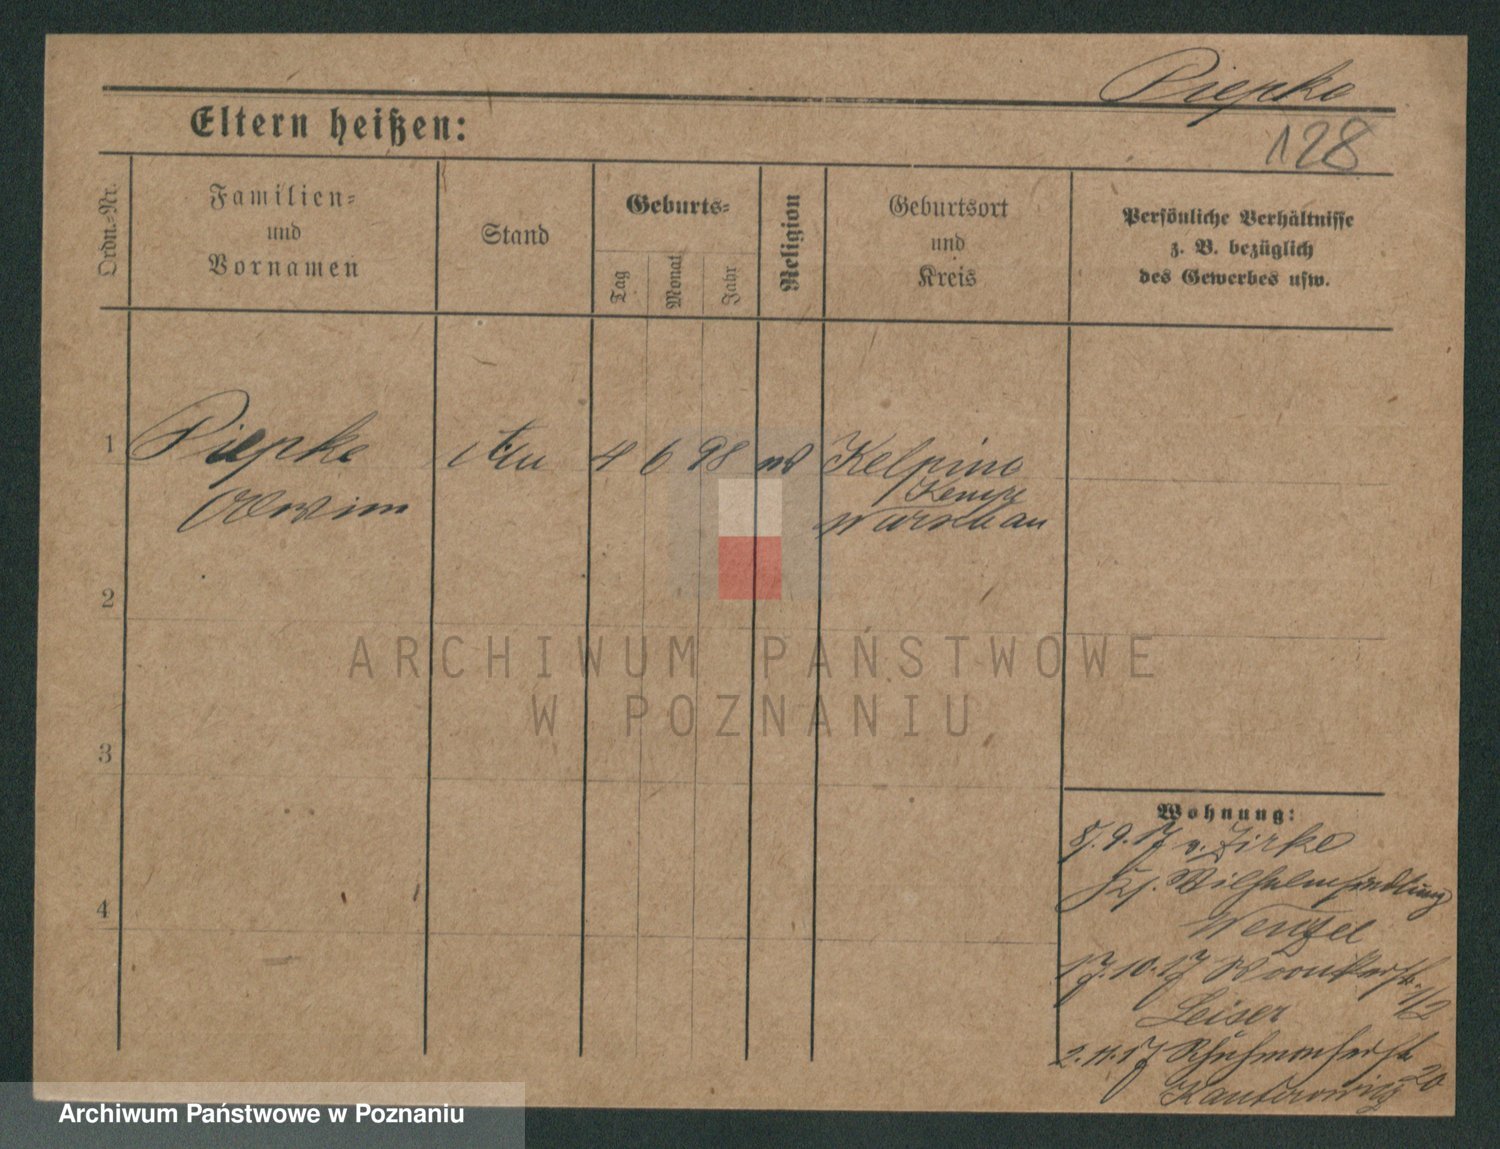 Piepke
128
Eltern heißen:
Ordn.-Nr.
Familien-
und
Vornamen
Stand
Geburts-
Tag
Monat
Jahr
Religion
Geburtsort
und
Kreis
Persönliche Verhältnisse
z. B. bezüglich
des Gewerbes usw.
1
Piepke
4 6 98
Kelpino
Warschau
2
3
4
Wohnung:
8.9.17 v. Zirke
Wilhelm
Wenzel
17.10.17
1/2
Leiser
2.11.17
20
Kantorowicz
ARCHIWUM PAŃSTWOWE
W POZNANIU
Archiwum Państwowe w Poznaniu